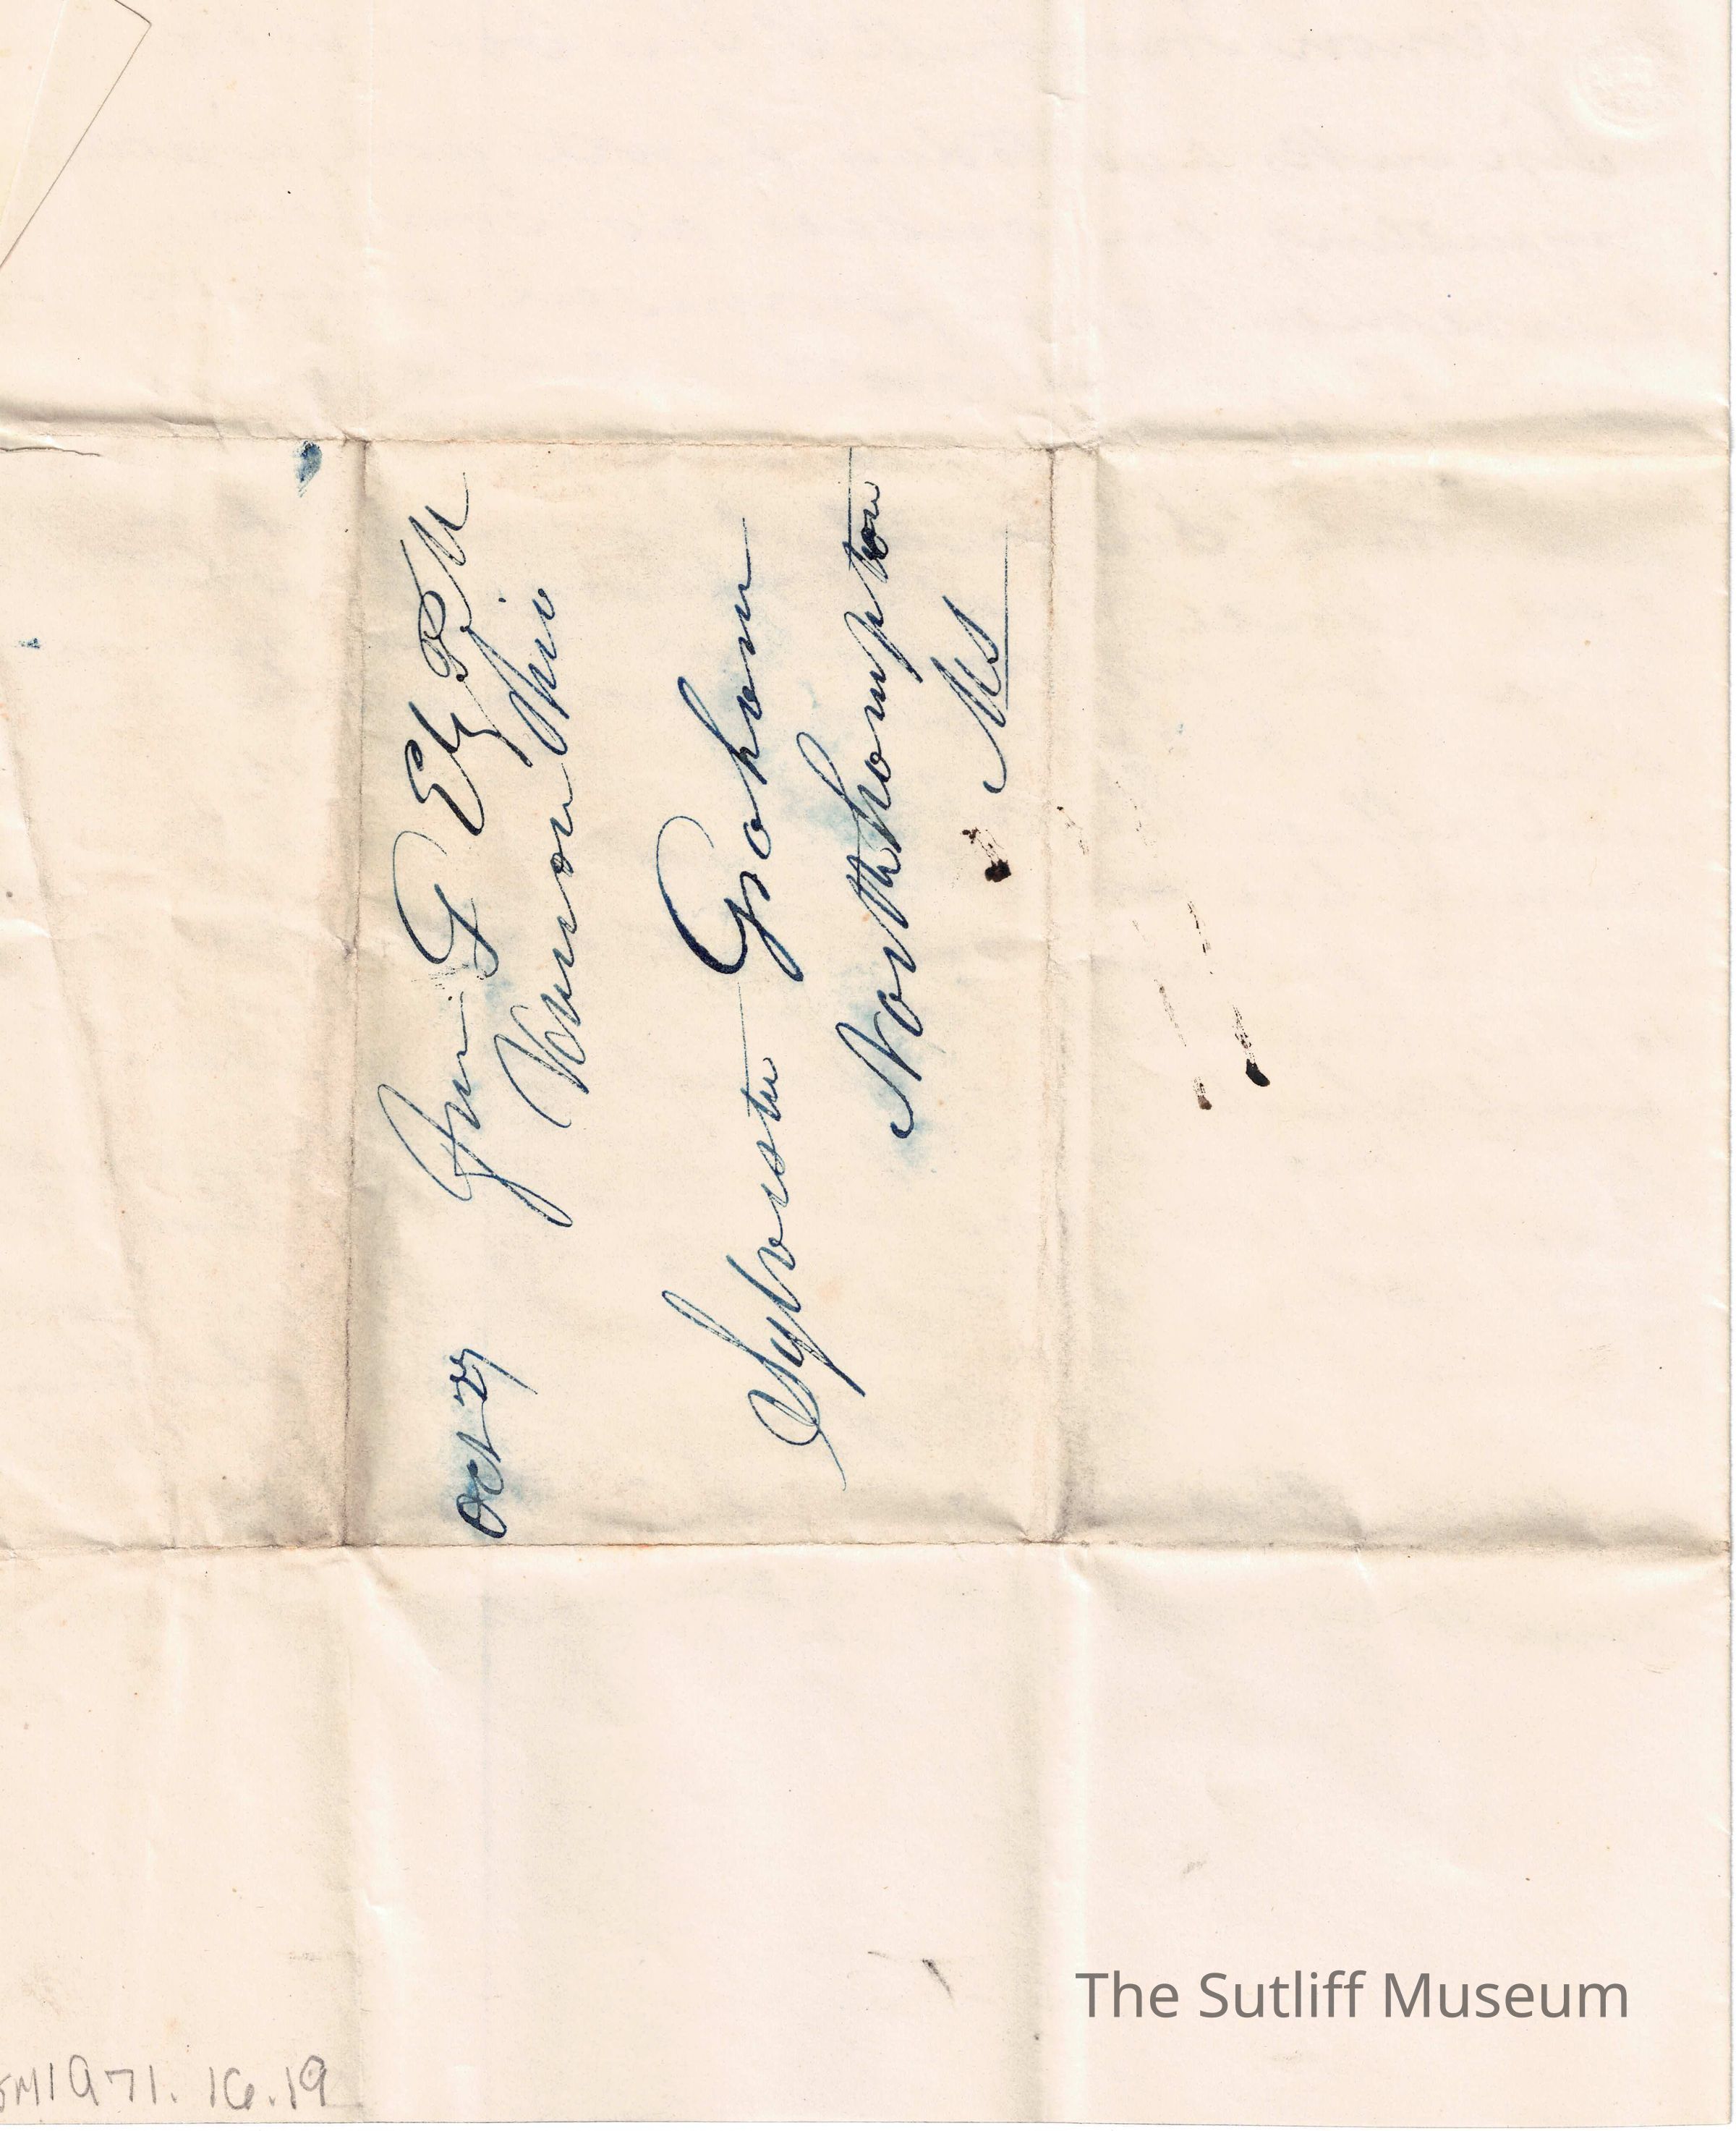 Oct 27 Free F Ely PM
Vernon Ohio
Sylvester Graham
Norththampton
Ms
The Sutliff Museum
SM1971.16.19